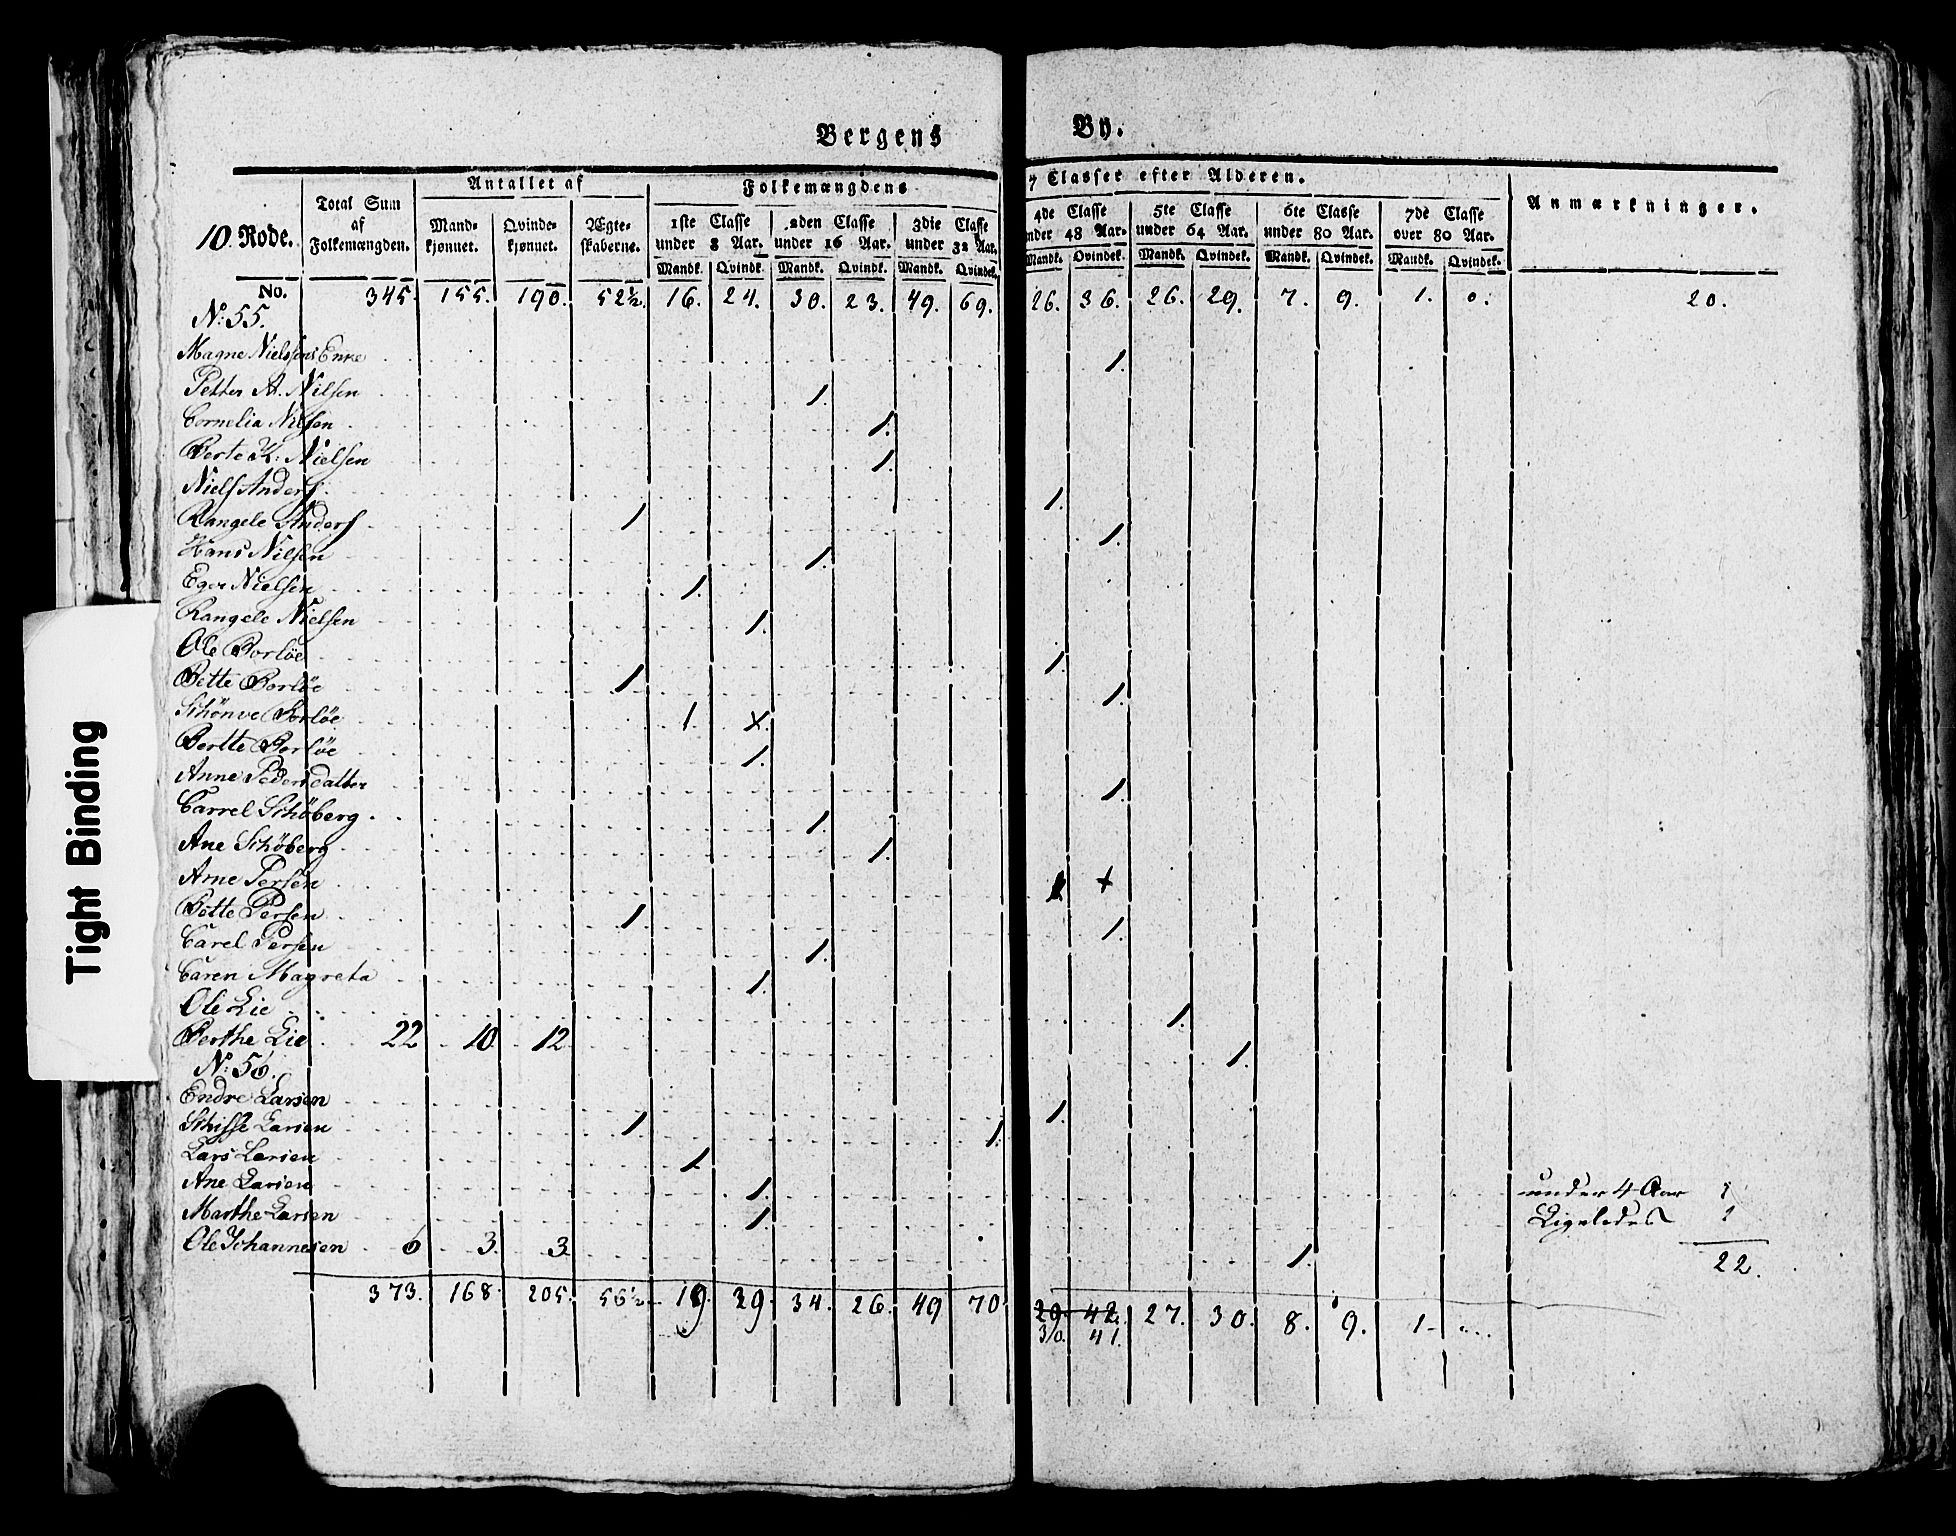 Bergens By.
10. Rode. Total Sum af Folkemængden. Antallet af Folkemængdens 7 Classer efter Alderen. Anmærkninger.
Mandkjønnet. Qvindekjønnet. Ægteskaberne. 1ste Classe under 8 Aar. 2den Classe under 16 Aar. 3die Classe under 32 Aar. 4de Classe under 48 Aar. 5te Classe under 64 Aar. 6te Classe under 80 Aar. 7de Classe over 80 Aar.
Mandk. Qvindk. Mandk. Qvindk. Mandk. Qvindek. Mandk. Qvindek. Mandk. Qvindek. Mandk. Qvindek. Mandk. Qvindek.
No. 345. 155. 190. 52½. 16. 24. 30. 23. 49. 69. 26. 36. 26. 29. 7. 9. 1. 0. 20.
N: 55.
Magne Nielssens Enke 1.
Petter A. Nilsen 1.
Cornelia Nilsen 1.
Berte K: Nielsen 1.
Niels Anders 1.
Rangele Anders 1. 1.
Hans Nilsen 1.
Eger Nielsen 1.
Rangele Nielsen 1.
Ole Borløe 1.
Bette Borløe 1. 1.
Schönve Borløe 1. x.
Bertte Borløe 1.
Anne Pedersdatter 1.
Carrel Schöberg 1.
Ane Schöberg 1.
Arne Persen 1 x
Bette Persen 1. 1.
Carel Persen 1.
Caren Magreta 1.
Ole Lie 1.
Berthe Lie 22 10 12 1.
N: 56.
Endre Larsen 1.
Schisse Larsen 1. 1.
Lars Larsen 1
Ane Larsen 1. under 4 Aar 1
Marthe Larsen 1 Ligeledes 1
Ole Johannesen 6 3. 3 1. 22.
373. 168. 205. 56½ 19. 29. 34. 26. 49 70 29. 42. 27. 30. 8. 9. 1-
30. 41.
Tight Binding